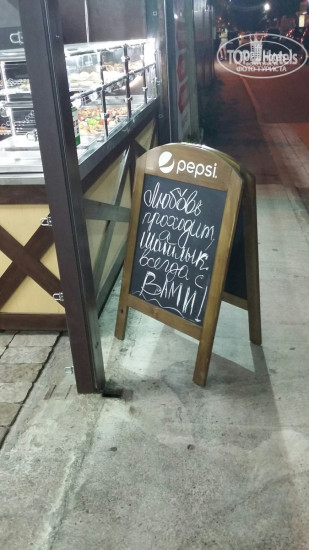 TOPHotels
ФОТО ТУРИСТА
pepsi.
Любовь
проходит,
а
шашлык
всегда с
ВАМИ!